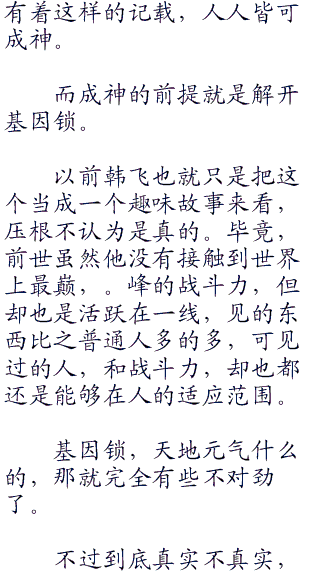 有着这样的记载，人人皆可
成神。
而成神的前提就是解开
基因锁。
以前韩飞也就只是把这
个当成一个趣味故事来看，
压根不认为是真的。毕竟，
前世虽然他没有接触到世界
上最巅，。峰的战斗力，但
却也是活跃在一线，见的东
西比之普通人多的多，可见
过的人，和战斗力，却也都
还是能够在人的适应范围。
基因锁，天地元气什么
的，那就完全有些不对劲
了。
不过到底真实不真实，